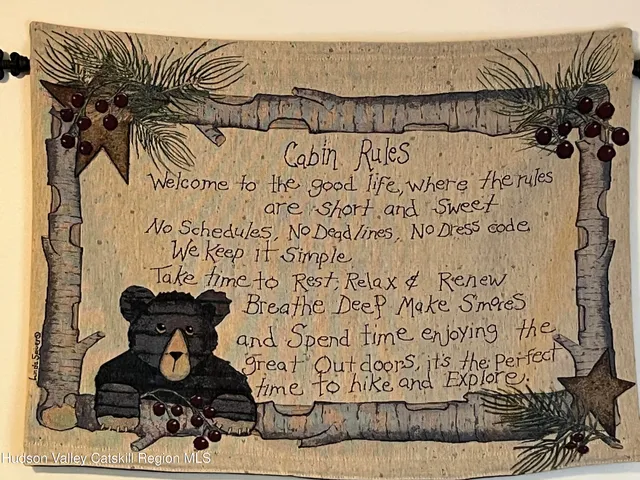 Cabin Rules
Welcome to the good life, where the rules
are short and sweet
No Schedules, No Deadlines, No Dress code
We Keep it Simple
Take time to Rest, Relax & Renew
Breathe Deep Make S'mores
and Spend time enjoying the
great Outdoors, it's the Perfect
time to hike and Explore.
Hudson Valley Catskill Region MLS